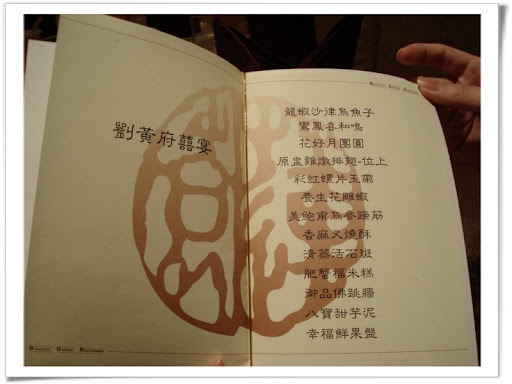 劉黃府囍宴
BEAUTIFUL GARDEN RESTAURANT
BEAUTIFUL GARDEN RESTAURANT
龍蝦沙律烏魚子
鸞鳳喜和鳴
花好月團圓
原盅雞燉排翅-位上
彩虹螺片玉帶
養生花雕蝦
美鮑甫烏參蹄筋
香麻叉燒酥
清蒸活石斑
肥蟹福米糕
御品佛跳牆
八寶甜芋泥
幸福鮮果盤